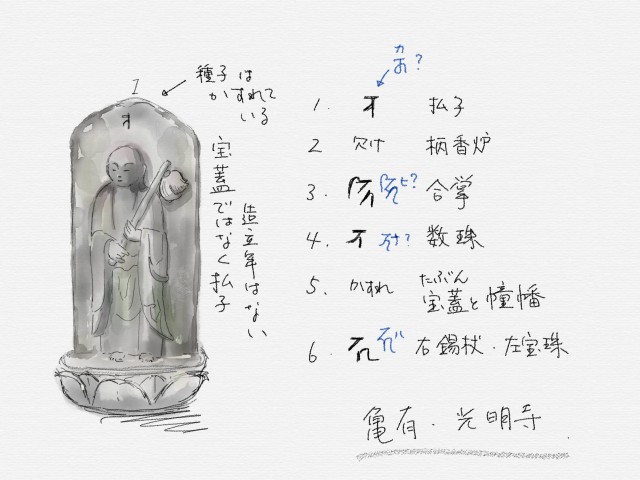 種子は
かすれて
いる
宝蓋ではなく払子
造立年はない
1
カ
あ?
1. 払子
2 欠け 柄香炉
3. ヒ? 合掌
4. 数珠
5. かすれ たぶん
宝蓋と幢幡
6. 右錫杖・左宝珠
亀有・光明寺